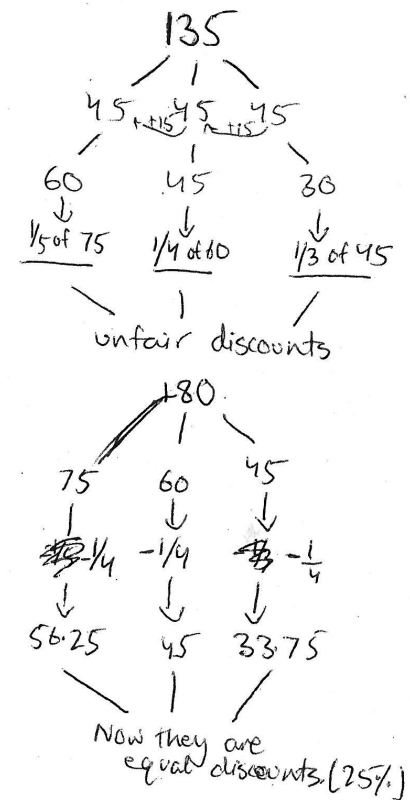 135
45 +15 45 +15 45
60 45 30
1/5 of 75 1/4 of 60 1/3 of 45
unfair discounts
180
75 60 45
-1/4 -1/4 -1/4
56.25 45 33.75
Now they are
equal discounts. (25%)